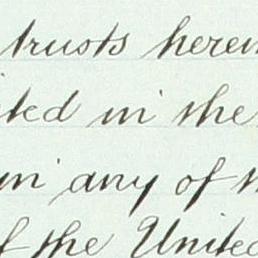 trusts herein
ited in the
in any of th
of the United